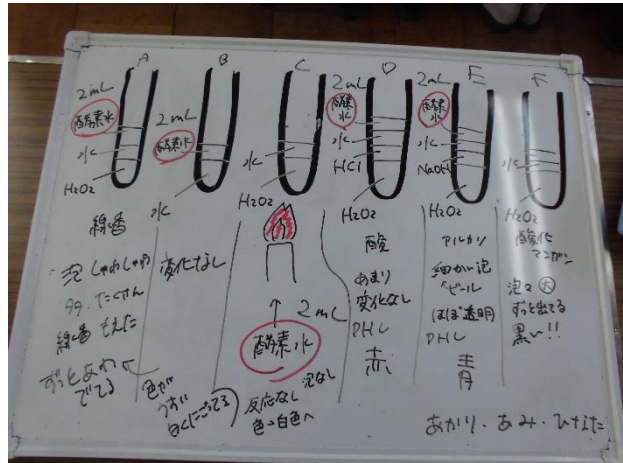 A B C D E F
2mL
酵素水
水
H2O2
線香
泡 しゅわしゅわ
たくさん
線香 もえた
ずっとあわ
でてる
2mL
酵素水
水
変化なし
色が
うすい
白くにごってる
水
H2O2
2mL
酵素水
反応なし 泡なし
色→白色へ
2mL
酵素水
水
HCl
H2O2
酸
あまり
変化なし
PHL
赤
2mL
酵素水
水
NaOH
H2O2
アルカリ
細かい泡
ビール
ほぼ透明
PHL
青
水
H2O2
酸化
マンガン
泡 大
ずっと出てる
黒い!!